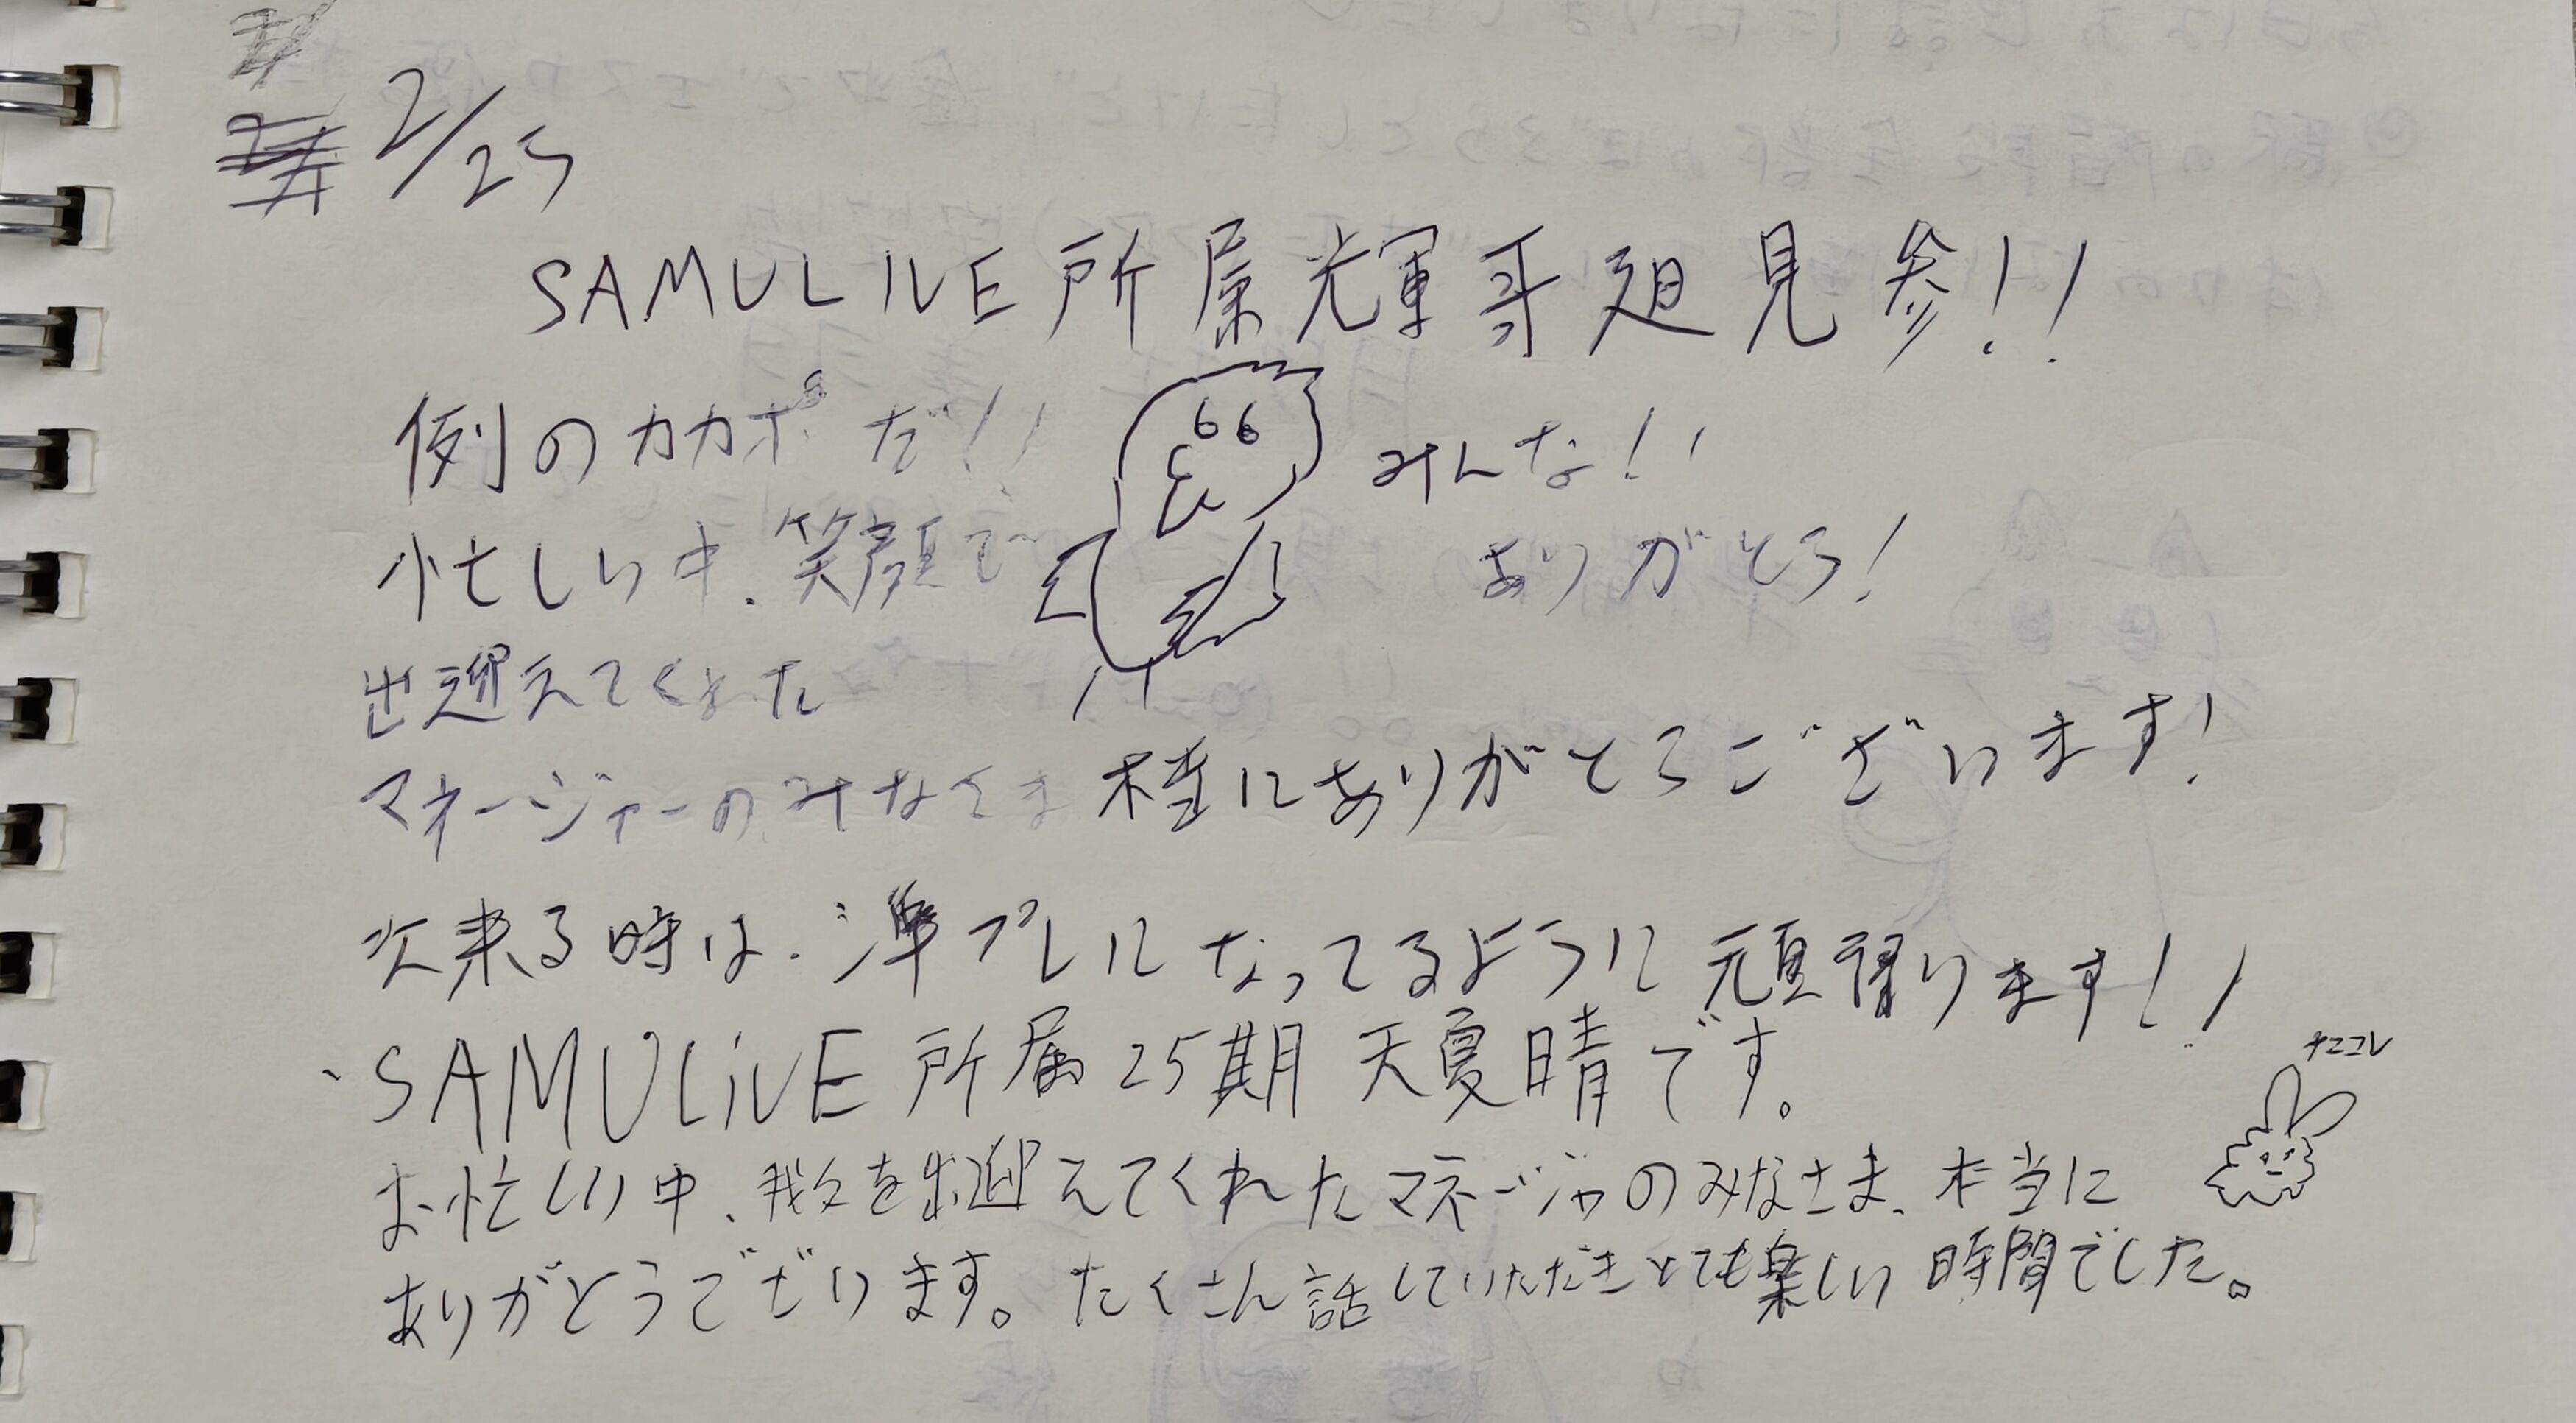 2/25
SAMULIVE所属輝哥廻見参!!
例のカカポだ!!
みんな!!
忙しい中、笑顔で
ありがとう!
出迎えてくれた
マネージャーのみなさま 本当にありがとうございます!
次来る時は、準プレになってるように頑張ります!!
・SAMULiVE所属25期 天夏晴です。
ナニコレ
お忙しい中、我々を出迎えてくれたマネージャのみなさま、本当に
ありがとうございます。たくさん話していただきとても楽しい時間でした。